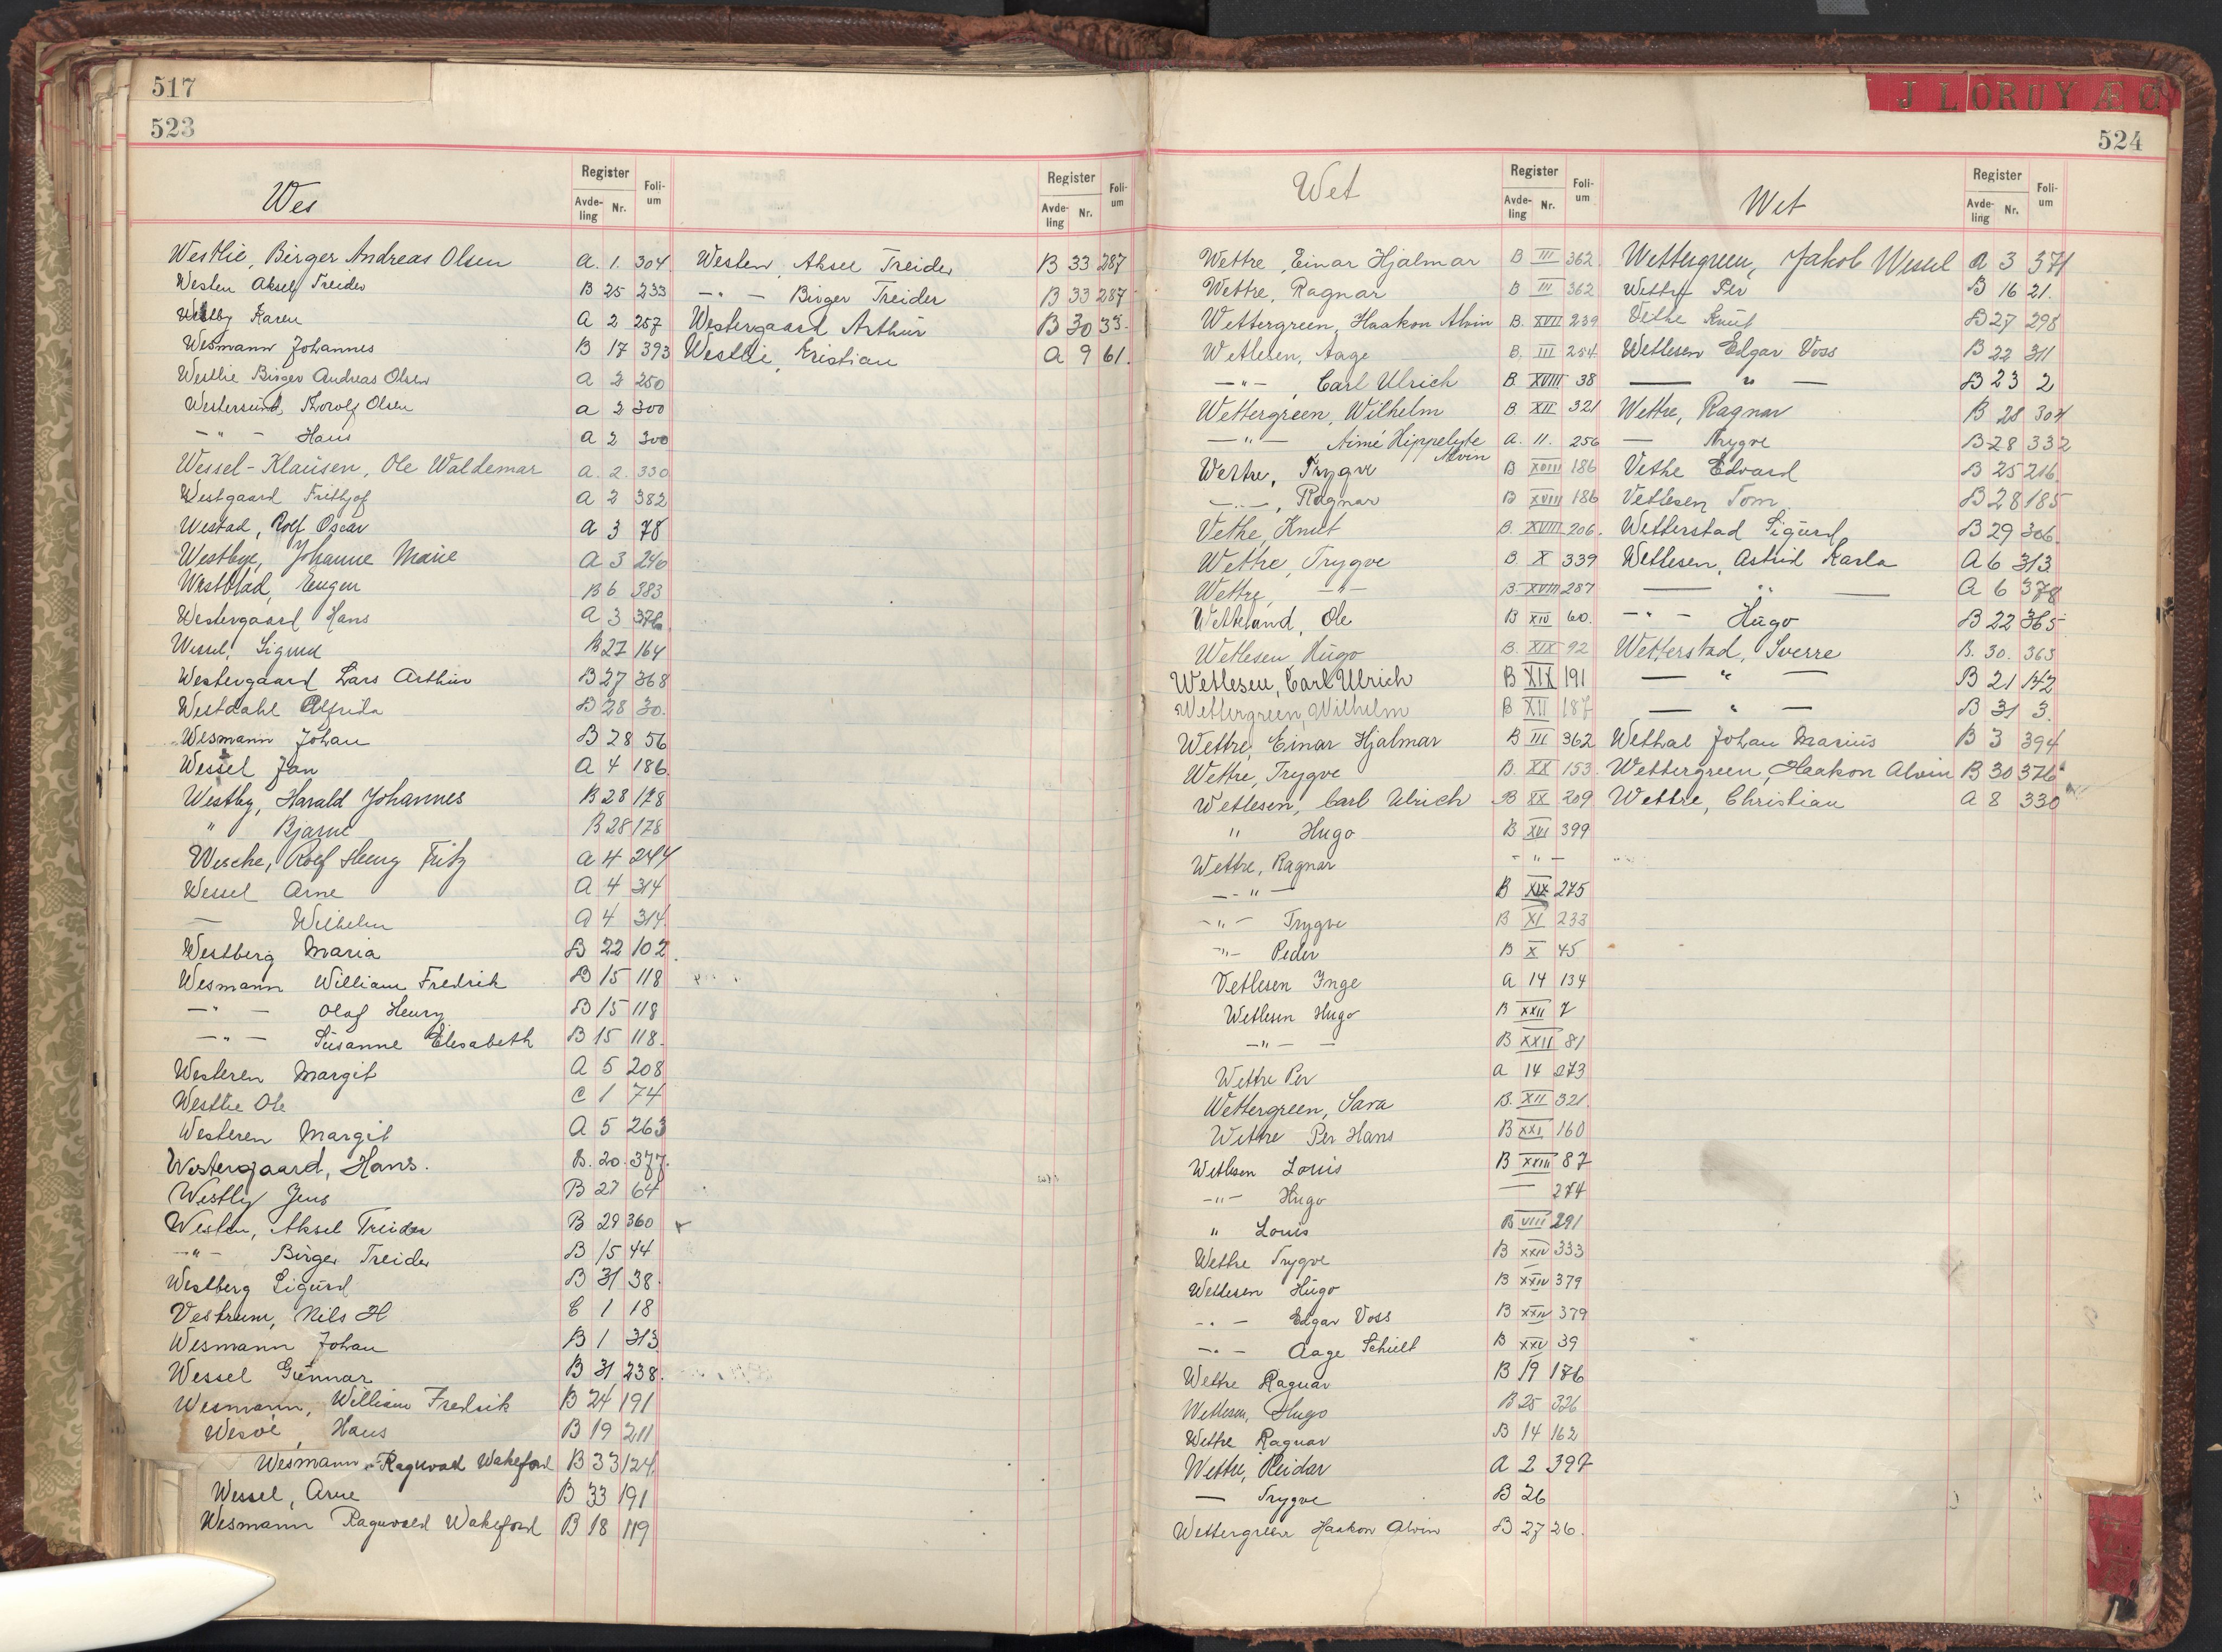 517
523
Wes
Register
Avde-
ling
Nr.
Foli-
um
Westlie, Birger Andreas Olsen A. 1. 304
Westen Aksel Treider B 25 233
Karen A 2 257
Wesmann Johannes B 17 393
Westlie Birger Andreas Olsen A 2 250
Westersund, Thorolf Olsen A 2 300
— " — Hans A 2 300
Wessel-Klausen, Ole Waldemar A. 2. 330
Westgaard Frithjof A 2 382
Westad, Rolf Oscar A 3 78
Westbye, Johanne Marie A 3 246
Westblad, Eugen B 6 383
Westergaard Hans A 3 376
Wessel, Sigurd B 27 164
Westergaard Lars Arthur B 27 368
Westdahl Alfrida B 28 30.
Wesmann Johan B 28 56
Wessel Jan A 4 186
Westby, Harald Johannes B 28 178
" Bjarne B 28 178
Wesche, Rolf Henry Fritz A 4 244
Wessel Arne A 4 314
— Wilhelm A 4 314
Westberg Maria B 22 102
Wesmann William Fredrik B 15 118
— " — Olaf Henry B 15 118
— " — Susanne Elisabeth B 15 118
Westeren Margit A 5 208
Westlie Ole C 1 74
Westeren Margit A 5 263
Westergaard, Hans. B. 20. 377.
Westly Jens B 27 64
Westen, Aksel Treider B 29 360
— " — Birger Treider B 15 44
Westberg Sigurd B 31 38
Vestrum, Nils H C 1 18
Wesmann Johan B 1 313
Wessel Gunnar B 31 238.
Wesmann, William Fredrik B 24 191
Wesoe, Hans B 19 211
Wesmann, Ragnvald Wakeford B 33 124
Wessel, Arne B 33 191
Wesmann Ragnvald Wakeford B 18 119
Register
Avde-
ling
Nr.
Foli-
um
Westen, Aksel Treider B 33 287
— " — Birger Treider B 33 287
Westergaard Arthur B 30 33
Westlie, Kristian A 9 61.
J L O R U Y Æ Ø
524
Wet
Register
Avde-
ling
Nr.
Foli-
um
Wettre, Einar Hjalmar B III 362
Wettre, Ragnar B III 362
Wettergreen, Haakon Alvin B. XVII 239
Wetlesen, Aage B. III 254
— " — , Carl Ulrich B. XVIII 38
Wettergreen, Wilhelm B XII 321
— " — Aimé Hippelyte Alvin A. 11. 256
Wettre, Trygve B XVIII 186
— " — , Ragnar B XVIII 186
Vethe, Knut B. XVIII 206.
Wettre, Trygve B X 339
Wettre, — " — B. XVIII 287
Wetteland, Ole B XIV 60.
Wetlesen Hugo B. XIX 92
Wetlesen, Carl Ulrich B XIX 191
Wettergreen, Wilhelm B XII 187
Wettre, Einar Hjalmar B III 362
Wettre, Trygve B. XX 153
Wetlesen, Carl Ulrich B XX 209
" Hugo B XVI 399
Wettre, Ragnar — " —
— " — B XIX 275
— " — Trygve B XI 233
— " — Peder B X 45
Vetlesen Inge A 14 134
Wetlesen Hugo B XXII 7
— " — B XXII 81
Wettre Per A 14 273
Wettergreen, Sara B. XII 321.
Wettre Per Hans B XXI 160
Wetlesen Louis B XXIII 87
— " — Hugo — 274
" Louis B VIII 291
Wettre Trygve B XXIV 333
Wetlesen Hugo B XXIV 379
— " — Edgar Voss B XXIV 379
— " — Aage Schielt B XXV 39
Wettre Ragnar B 19 176
Wetlesen, Hugo B 25 326
Wettre Ragnar B 14 162
Wettre, Reidar A 2 397
— Trygve B 26
Wettergreen Haakon Alvin B 27 26.
Wet
Register
Avde-
ling
Nr.
Foli-
um
Wettergreen, Jakob Wessel A 3 371
Wettre Per B 16 21.
Vethe Knut B 27 298
Wetlesen Edgar Voss B 22 311
— " — B 23 2
Wettre, Ragnar B 28 304
— Trygve B 28 332
Vethe Edvard B 25 216.
Vetlesen Tom B 28 185
Wetterstad Sigurd B 29 306.
Wetlesen, Astrid Karla A 6 313
— " — A 6 378
— " — Hugo B 22 365
Wetterstad, Sverre B. 30. 363
— " — B 21 142
— " — B 31 3.
Wethal Johan Marius B 3 394
Wettergreen, Haakon Alvin B 30 376
Wettre, Christian A 8 330